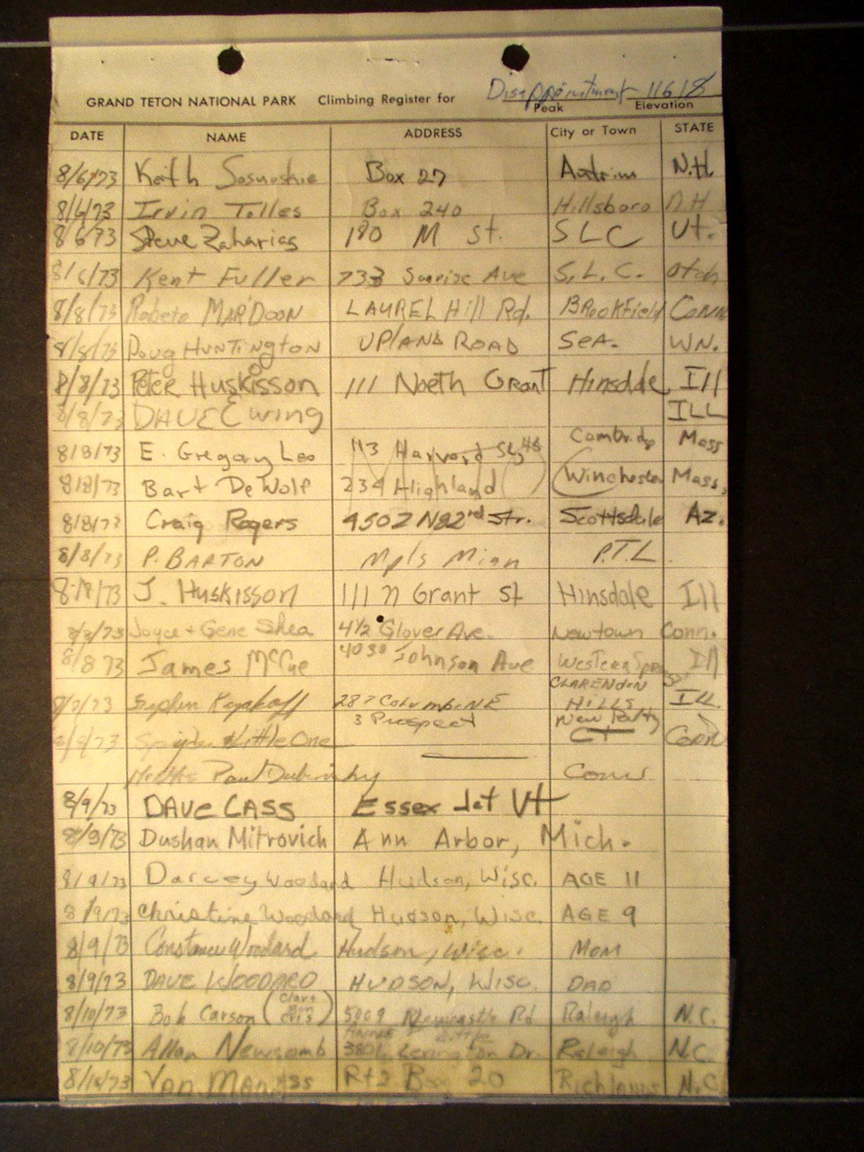 Disappointment 11618
GRAND TETON NATIONAL PARK Climbing Register for Peak Elevation
DATE NAME ADDRESS City or Town STATE
8/6/73 Keith Sosnoskie Box 27 Antrim N.H.
8/6/73 Irvin Tolles Box 240 Hillsboro N.H
8/6/73 Steve Zaharias 180 M St. SLC Ut.
8/6/73 Kent Fuller 733 Sunrise Ave S.L.C. Utah
8/8/73 LAUREL Hill Rd. BROOKfield CONN
8/8/73 Doug HUNTINGTON UPLAND ROAD SEA. WN.
8/8/73 Peter Huskisson 111 North Grant Hinsdale Ill
8/8/73 DAVE Ewing ILL
8/8/73 E. Gregory Leo 113 Harvard St, Cambridg Mass
8/8/73 Bart DeWolf 234 Highland Winchester Mass,
8/8/73 Craig Rogers 4502 N82nd Str. Scottsdale Az.
8/8/73 P. BARTON Mpls Minn P.T.L.
J. Huskisson 111 N Grant St Hinsdale Ill
8/8/73 Joyce + Gene Shea 41/2 Glover Ave. Newtown Conn.
8/8/73 James McCue 4030 Johnson Ave Western Ill
287 Columbine CLARENDON HILLS ILL
8/8/73 LittleOne 3 Prospect CT Conn
Paul Dubinsky Conn
8/9/73 DAVE CASS Essex Jct Vt
8/9/73 Dushan Mitrovich Ann Arbor, Mich.
8/9/73 Darcey Woodard Hudson, Wisc. AGE 11
8/9/73 Christine Woodard Hudson, Wisc. AGE 9
8/9/73 Constance Woodard Hudson, Wisc. MOM
8/9/73 DAVE WOODARD HUDSON, WISC. DAD
8/10/73 Bob Carson 5009 Newcastle Rd Raleigh N.C.
8/10/73 Allan Newcomb Lexington Dr. Raleigh N.C.
8/10/73 Van Rt2 Box 20 RICHLANDS N.C